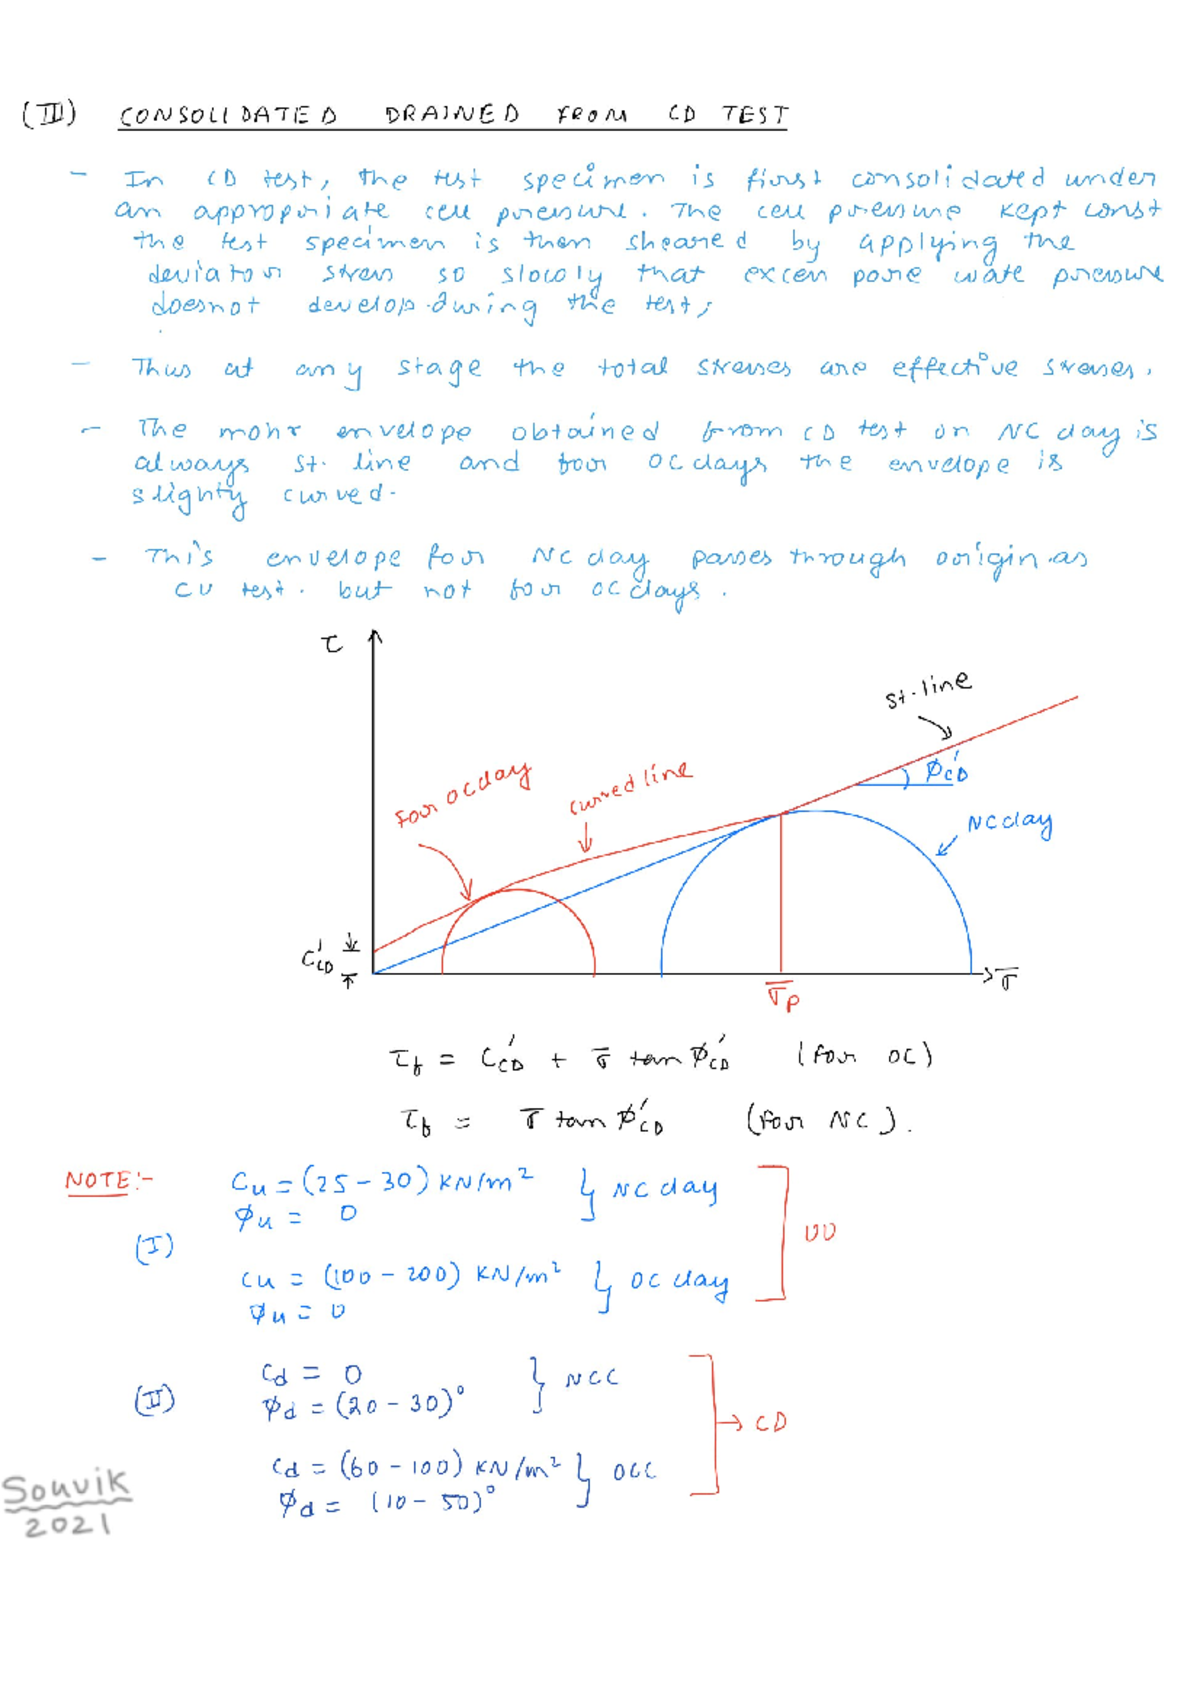 (III) CONSOLIDATED DRAINED FROM CD TEST
- In CD test, the test specimen is first consolidated under
an appropriate cell pressure. The cell pressure kept const
the test specimen is then sheared by applying the
deviator stress so slowly that excess pore wate pressure
doesnot develop during the test,
- Thus at any stage the total stresses are effective stresses.
- The mohr envelope obtained from CD test on NC clay is
always st. line and for OC clays the envelope is
slighty curved.
- This envelope for NC clay passes through origin as
CU test. but not for OC clays.
τ
St. line
φ'CD
For OC clay
curved line
NC clay
C'CD
σ̄
σ̄p
τf = C'CD + σ̄ tan φ'CD (for OC)
τf = σ̄ tan φ'CD (for NC).
NOTE:-
(I)
Cu = (25 - 30) KN/m² } NC clay
φu = 0
UU
Cu = (100 - 200) KN/m² } OC clay
φu = 0
(II)
Cd = 0 } NCC
φd = (20 - 30)°
→ CD
Cd = (60 - 100) KN/m² } OCC
φd = (10 - 50)°
Souvik
2021